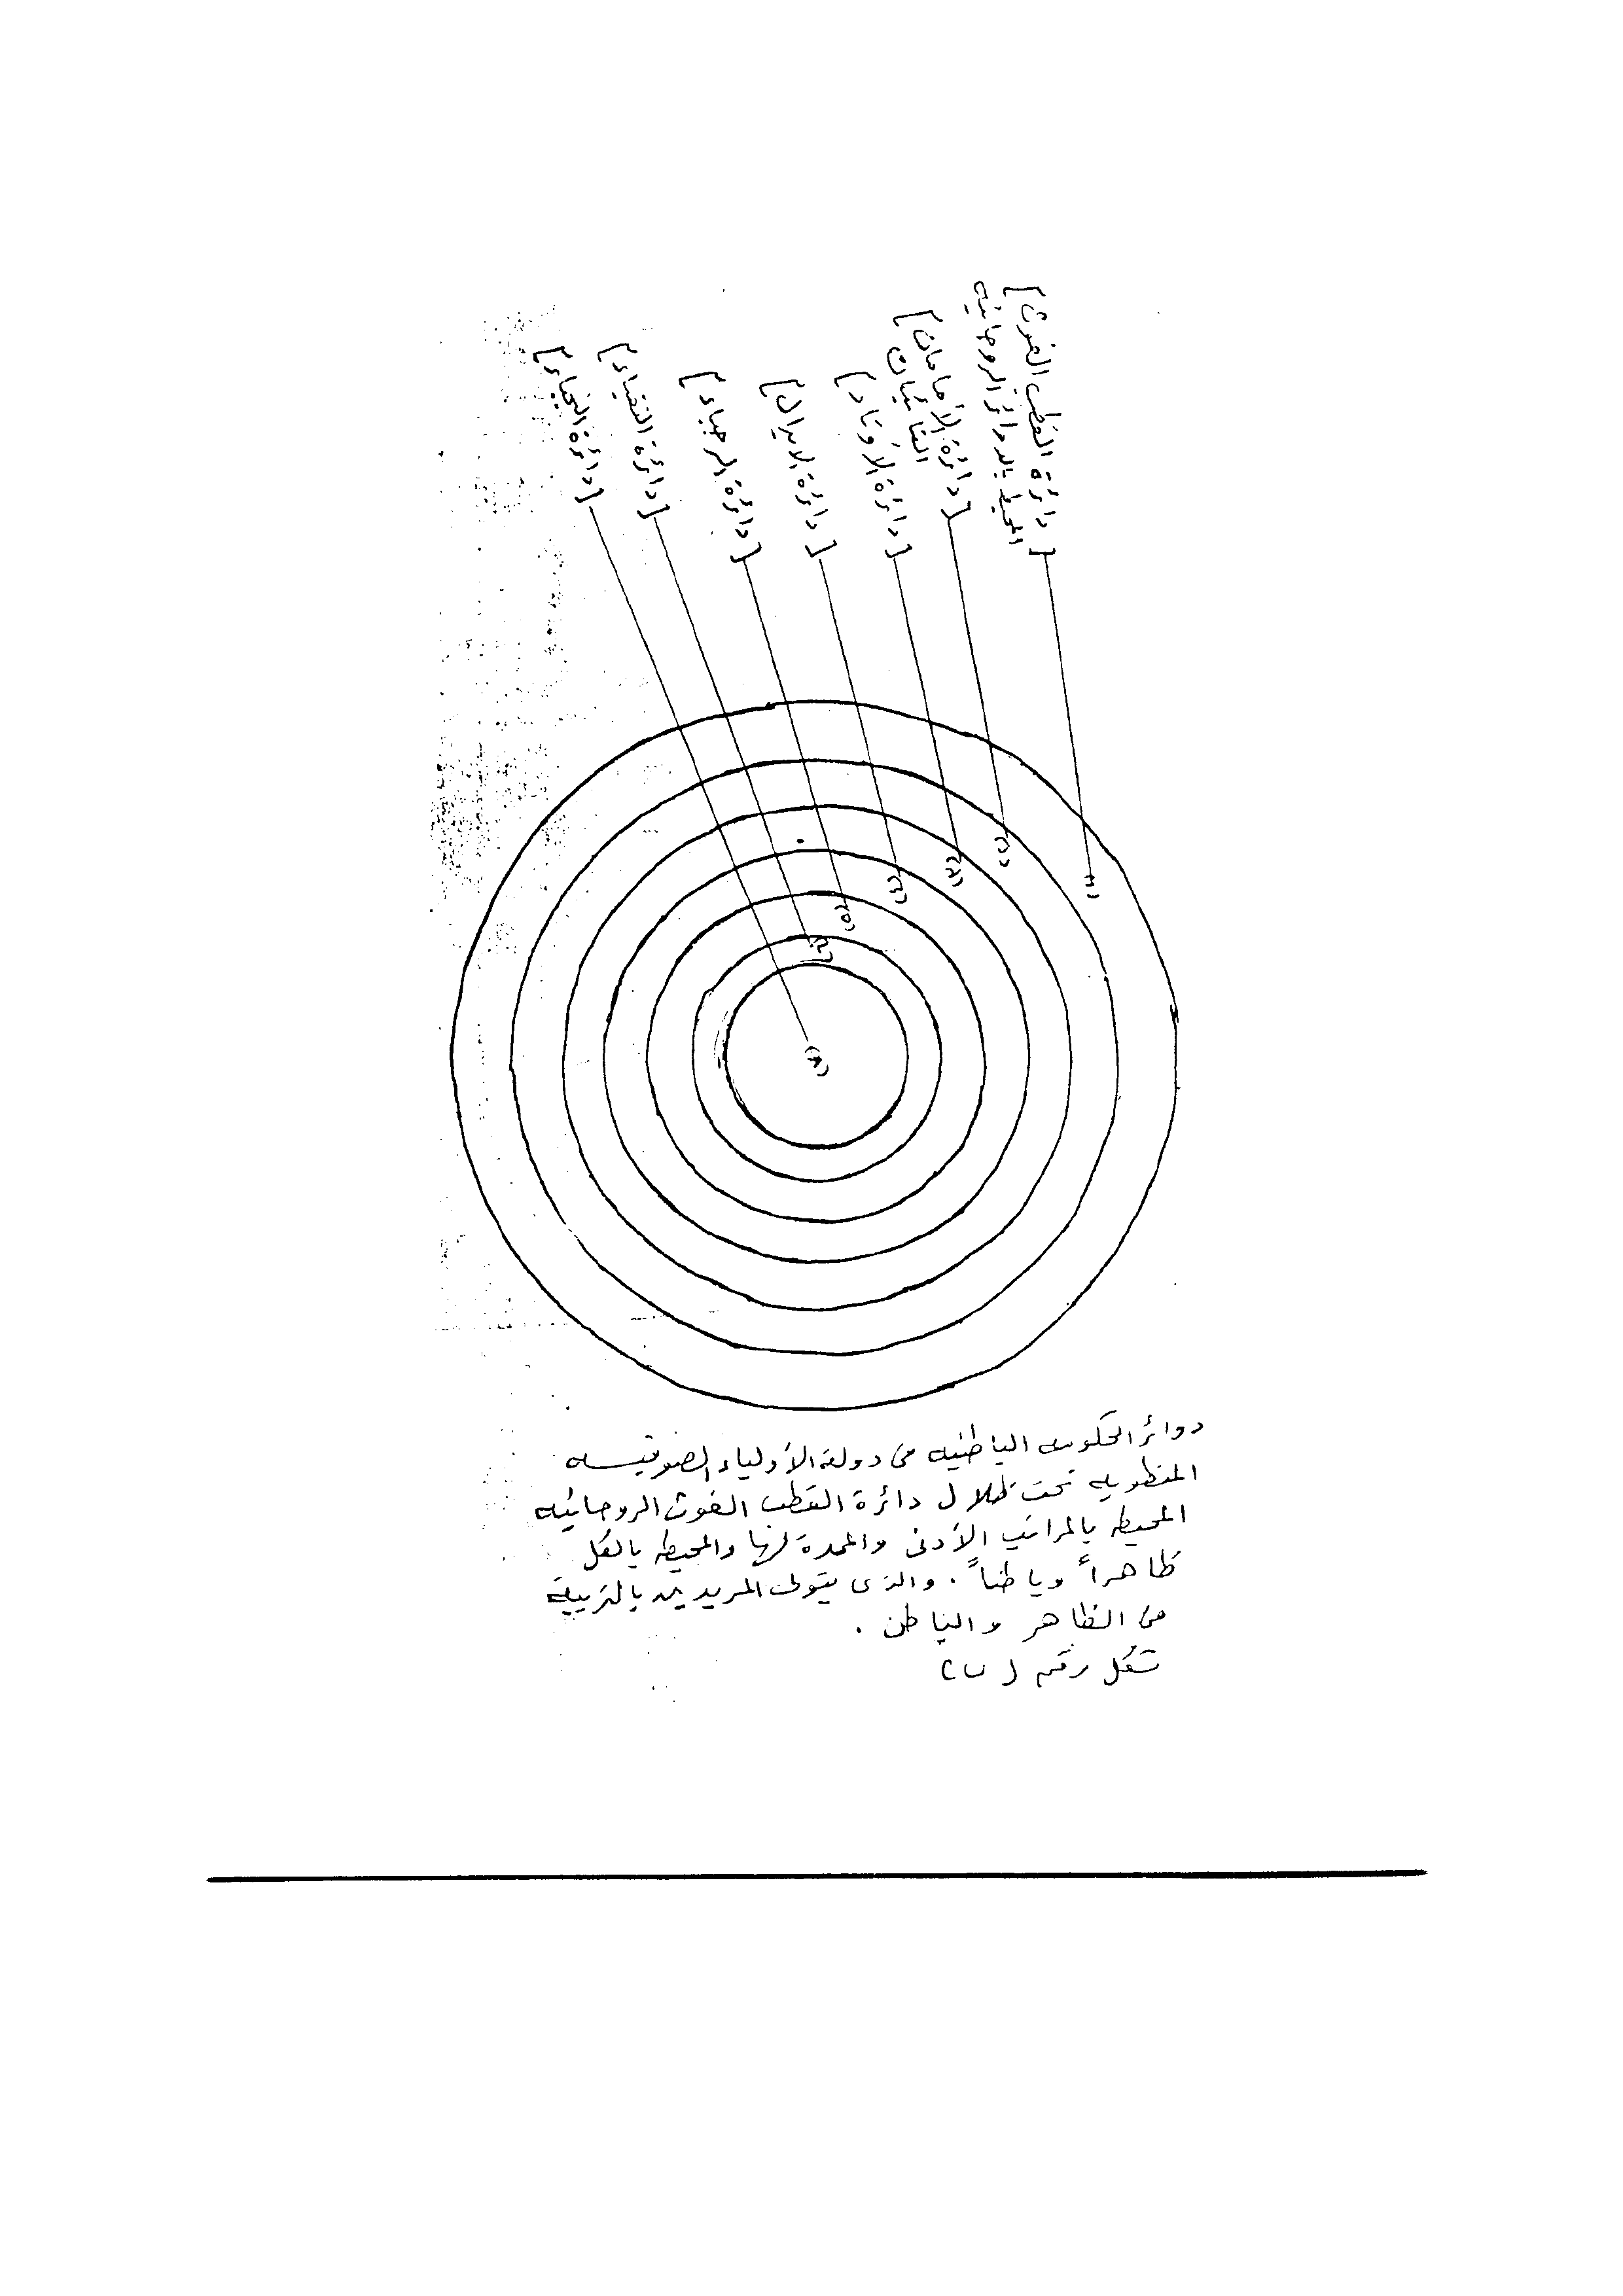 [دائرة القطب الغوث]
المحيط بالدوائر الروحانيه
[دائرة الأمامان]
[دائرة الأوتاد]
[دائرة الابدال]
[دائرة الرجباء]
[دائرة النقباء]
[دائرة النجباء]
(١)
(٢)
(٣)
(٤)
(٥)
(٦)
(٧)
دوائر الحكومه الباطنيه فى دولة الأولياء الصوفيه
المنطويه تحت ظلال دائرة القطب الغوث الروحانيه
المحيطه بالمراتب الأدنى والممدة لها والمحيطه بالكل
ظاهراً وباطناً . والذى يتولى المريدين بالتربية
فى الظاهر والباطن .
شكل رقم